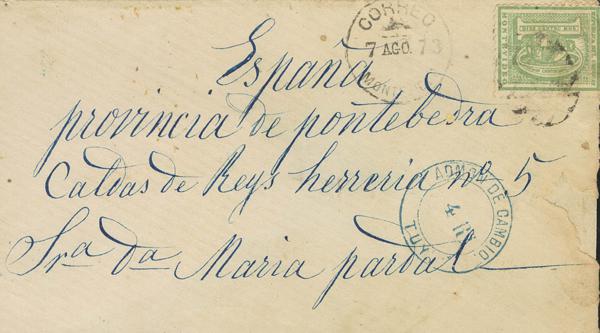 CORREO
7 AGO. 73
España
provincia de pontebedra
Caldas de Reys herreria nº. 5
ADMON DE CAMBIO.
TUY
Sra da Maria pardal